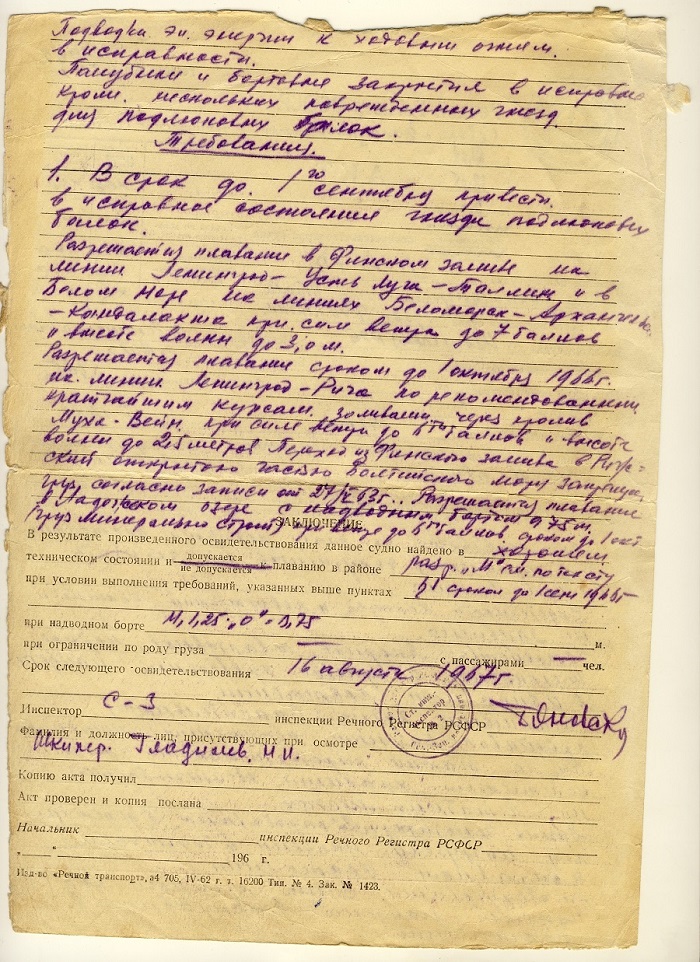 Подводка эл. энергии к ходовым огням.
в исправности.
Палубные и бортовые закрытия в исправно
кроме нескольких поврежденных гнезд
для подлюковых балок.
Требования.
1. В срок до 1го сентября привести.
в исправное состояние гнезда подлюковых
балок.
Разрешается плавание в Финском заливе на
линии Ленинград – Усть Луга – Таллин и в
Белом море на линиях Беломорск – Архангельск
– Кандалакша при силе ветра до 7 баллов
и высоте волны до 3,0 м.
Разрешается плавание сроком до 1 октября 1966г.
на линии Ленинград – Рига по рекомендованным
кратчайшим курсам заливами, через пролив
Муху-Вейн, при силе ветра до 6ти баллов и высоте
волны до 2,5 метров Переход из Финского залива в Риж-
ский открытою частью Балтийского моря запрещен.
Груз согласно записи от 27/ 63г. Разрешается плавание
в Ладожском озере с надводным бортом 975 м.
ЗАКЛЮЧЕНИЕ
Груз минерально строит при ветре до 6ти баллов, сроком до 1 окт
В результате произведенного освидетельствования данное судно найдено в хорошем
техническом состоянии и допускается / не допускается к плаванию в районе разр. „М" см. по тексту
при условии выполнения требований, указанных выше пунктах §1 сроком до 1 сен 1966г
при надводном борте М, 1,25 „О" – 0,75 м.
при ограничении по роду груза — с пассажирами — чел.
Срок следующего освидетельствования 16 августа 1967г
Инспектор С-3 инспекции Речного Регистра РСФСР
Фамилия и должность лиц, присутствующих при осмотре
Шкипер. Гладилев. Н.И.
Копию акта получил
Акт проверен и копия послана
Начальник инспекции Речного Регистра РСФСР
„ " 196 г.
Изд-во «Речной транспорт», а4 705, IV-62 г. т. 16200 Тип. № 4. Зак. № 1423.